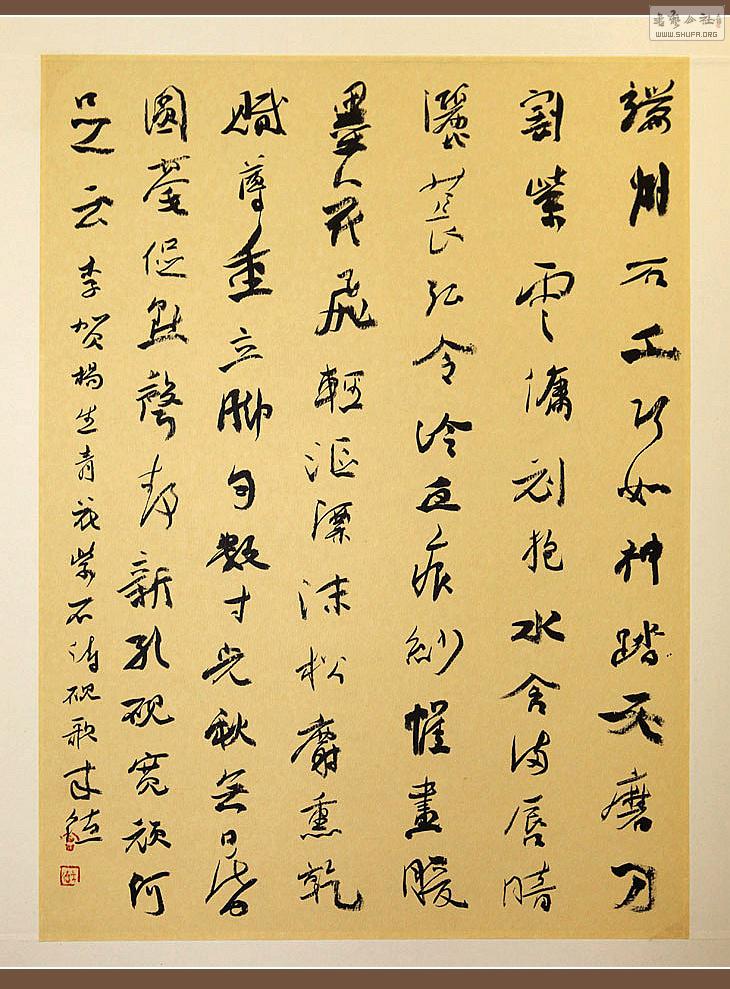 書藝公社
WWW.SHUFA.ORG
端州石工巧如神踏天磨刀
割紫雲傭刓抱水含满唇暗
灑萇弘令冷血痕紗帷畫暖
墨花飛輕漚漂沫松麝熏乾
膩薄重立脚匀數寸光秋無日昏
圓毫促點聲静新孔硯寬頑何
足云 李贺楊生青花紫石诗砚歌